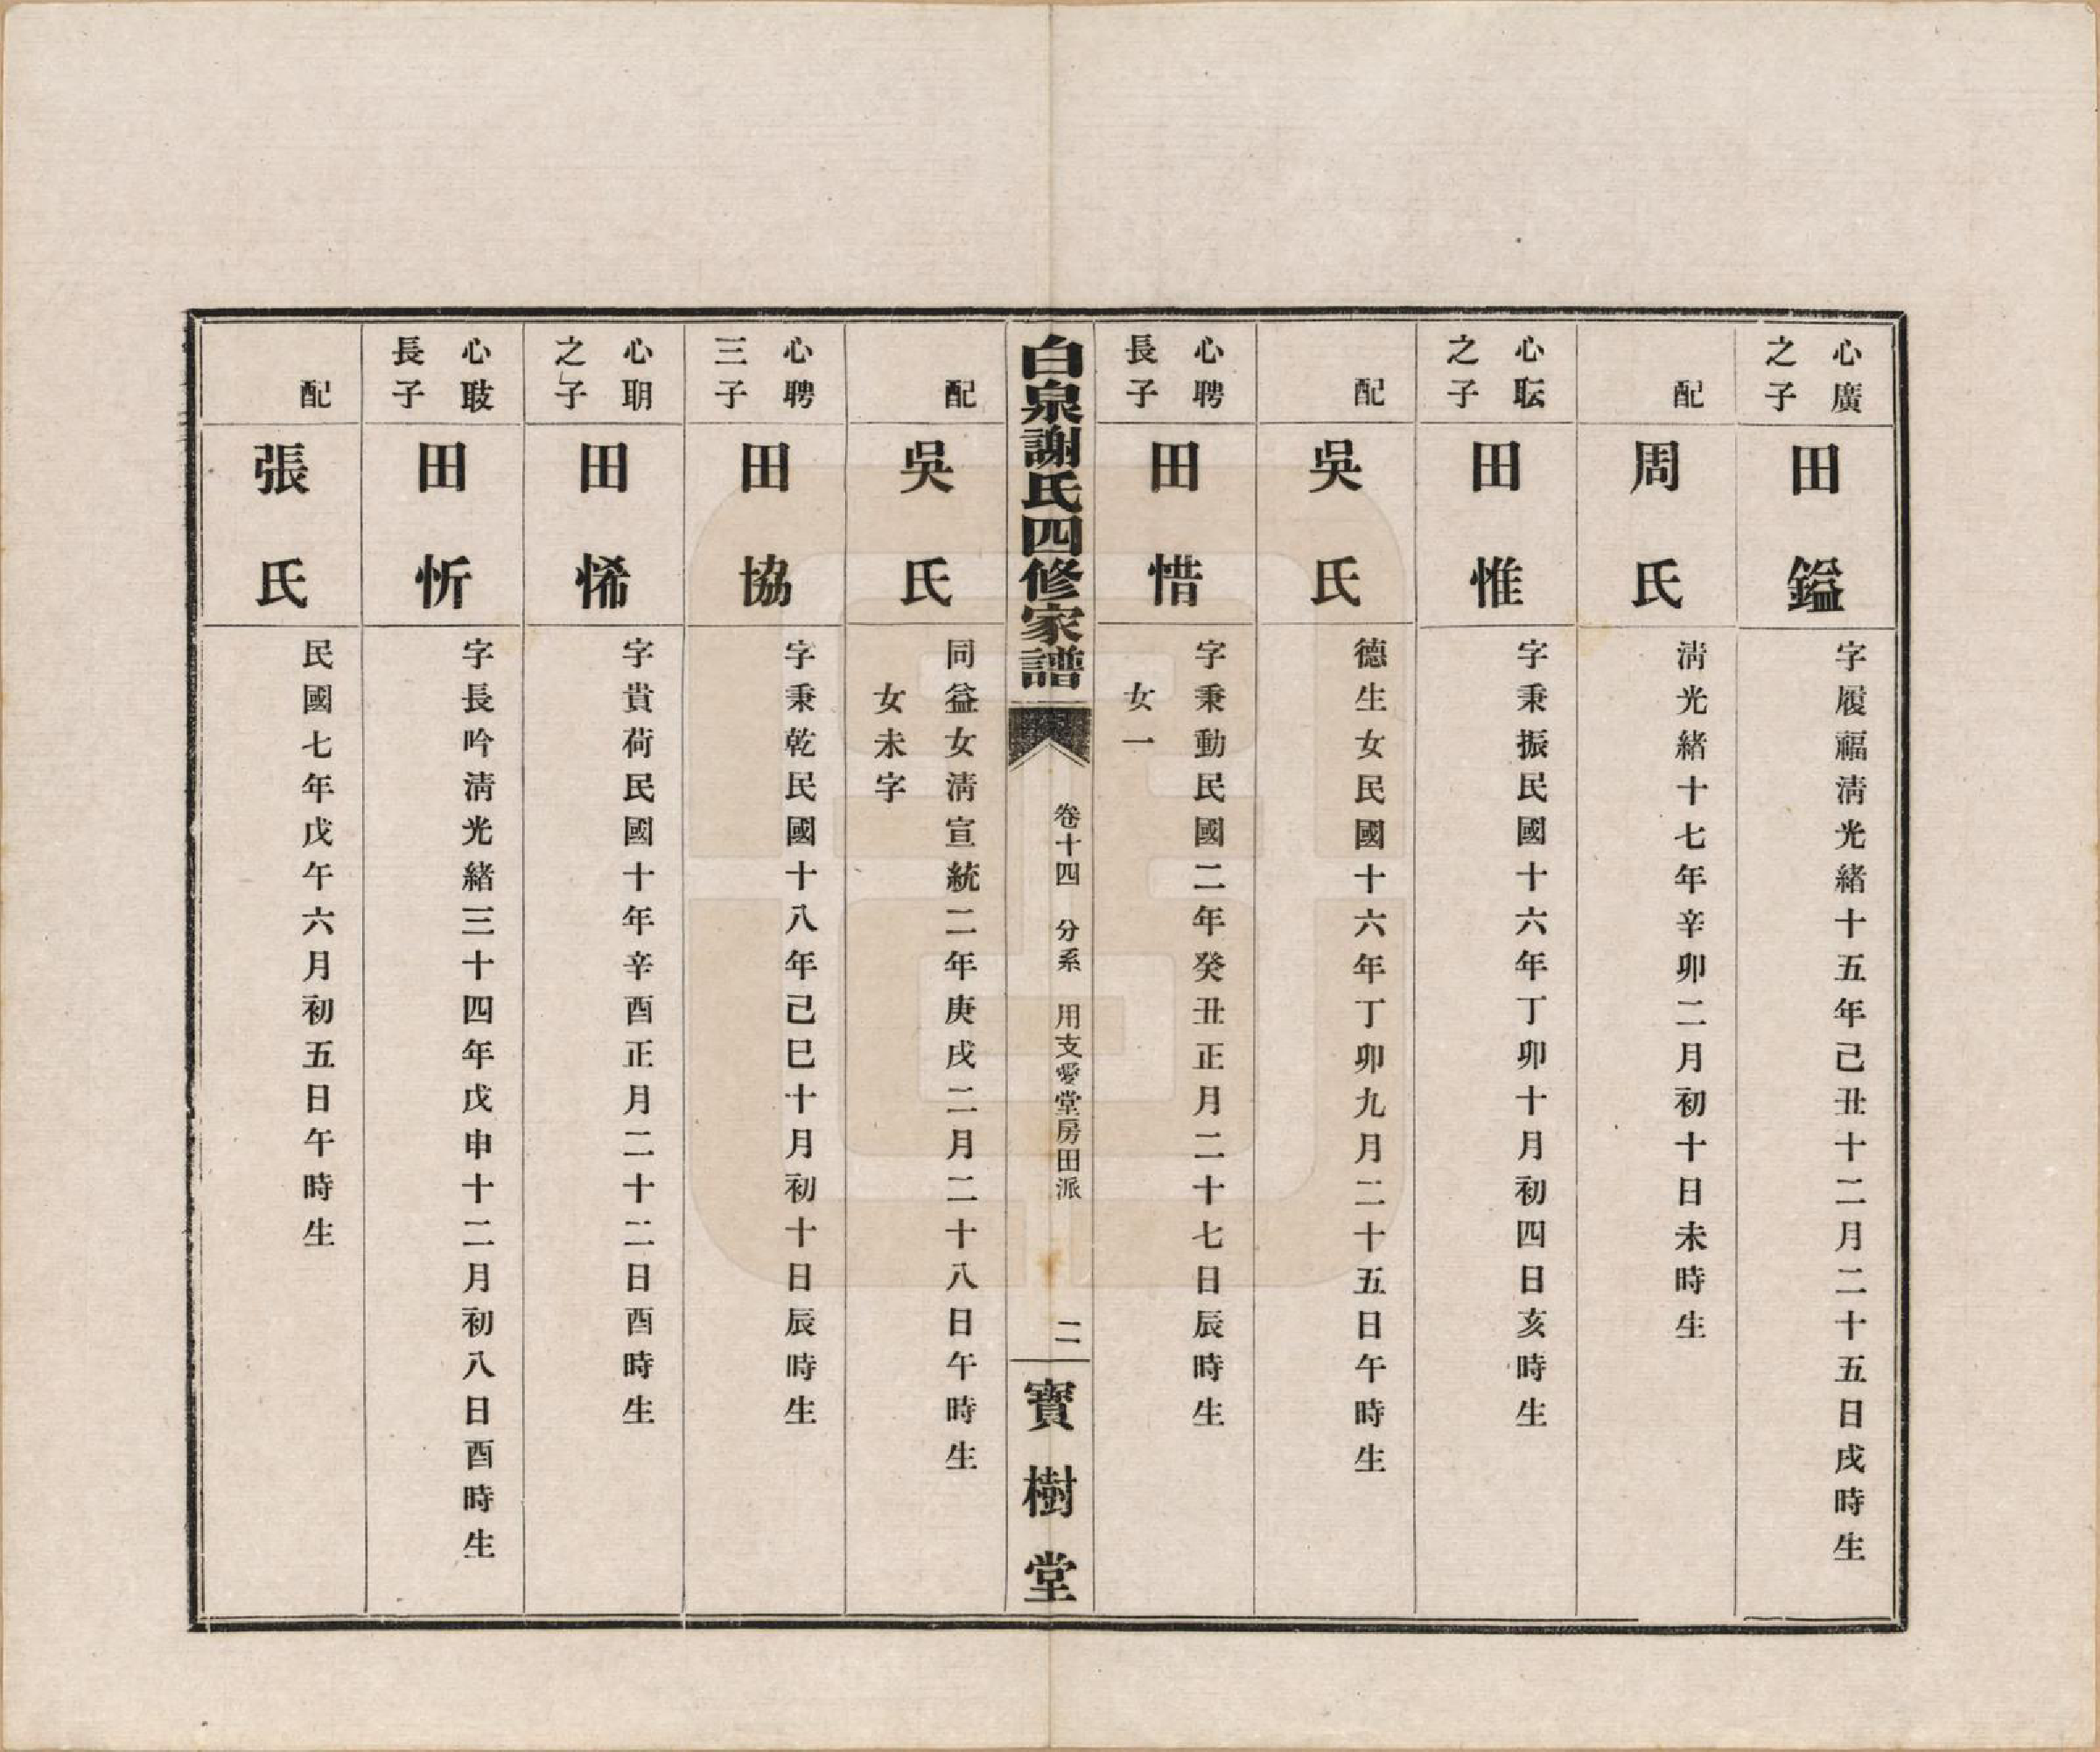 心廣
之子
田鎰
字履福淸光緒十五年己丑十二月二十五日戌時生
配
周氏
淸光緒十七年辛卯二月初十日未時生
心耺
之子
田惟
字秉振民國十六年丁卯十月初四日亥時生
配
吳氏
德生女民國十六年丁卯九月二十五日午時生
心聘
長子
田惜
字秉動民國二年癸丑正月二十七日辰時生
女一
白泉謝氏四修家譜
卷十四 分系 用支愛堂房田派
二
寶樹堂
配
吳氏
同益女淸宣統二年庚戌二月二十八日午時生
女未字
心聘
三子
田恊
字秉乾民國十八年己巳十月初十日辰時生
心明
之子
田悕
字貴荷民國十年辛酉正月二十二日酉時生
心
長子
田忻
字長吟淸光緒三十四年戊申十二月初八日酉時生
配
張氏
民國七年戊午六月初五日午時生